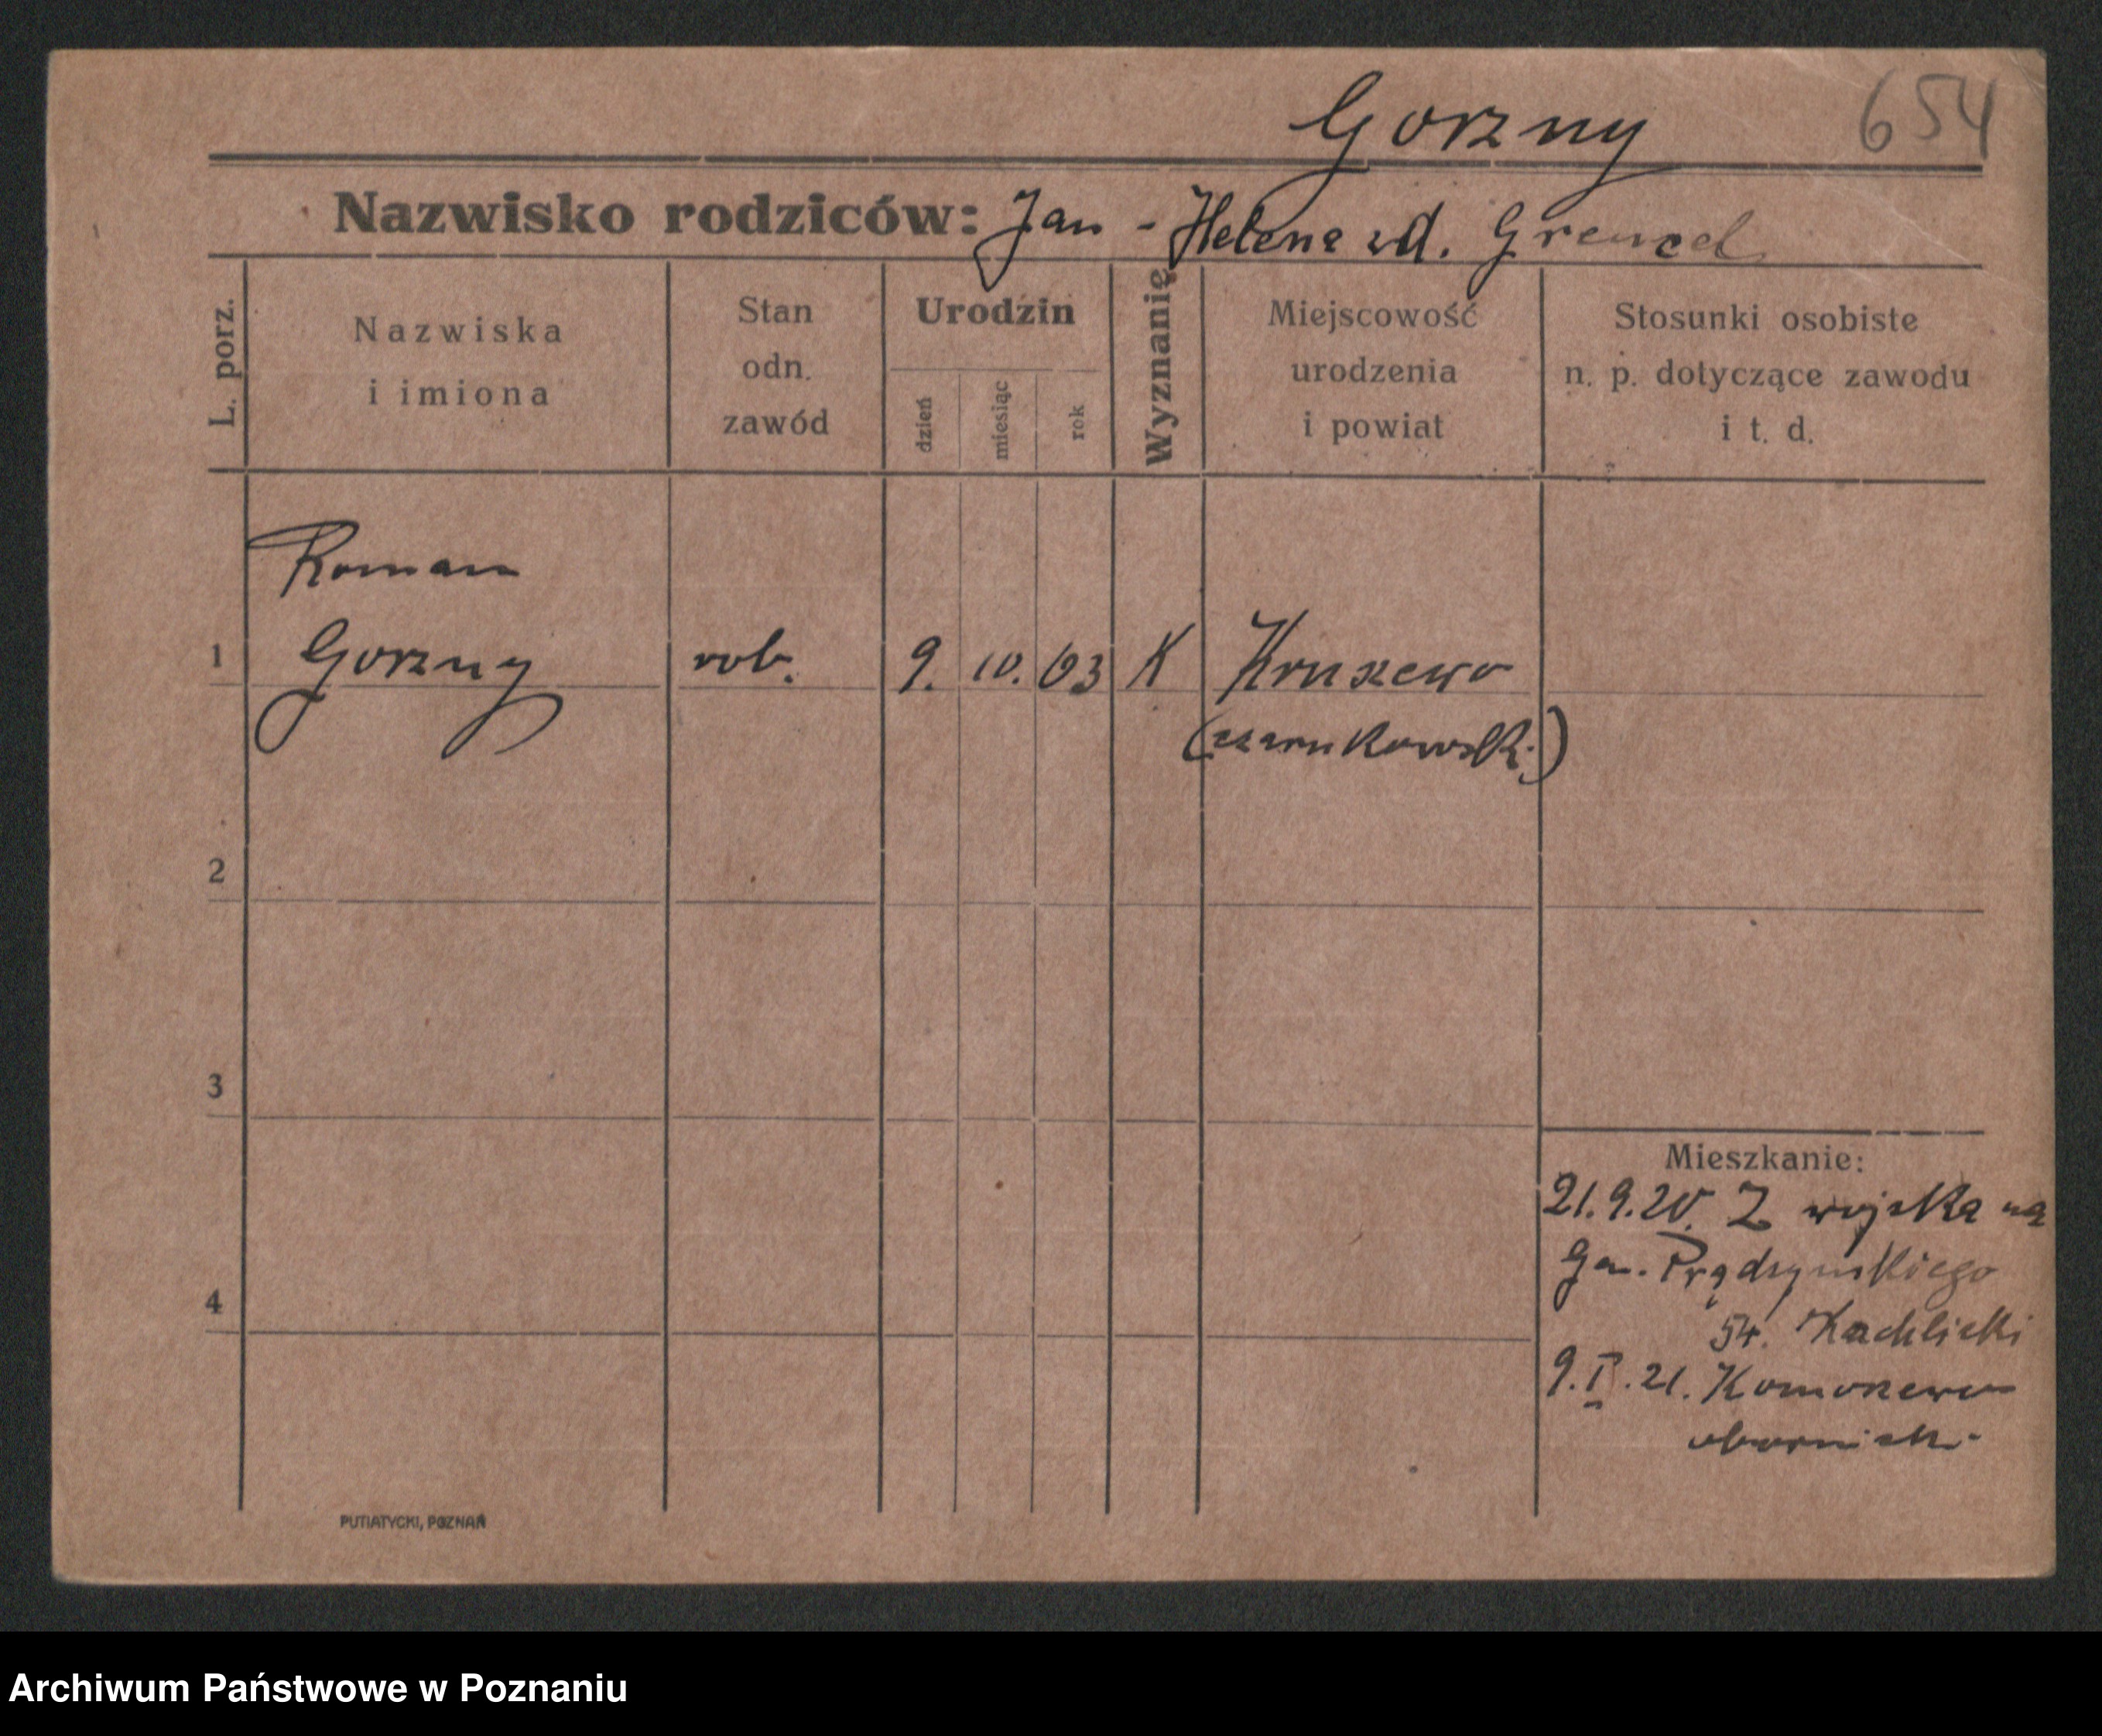 Gorzny 654
Nazwisko rodziców: Jan - Helena zd. Grenzel
L. porz.
Nazwiska
i imiona
Stan
odn.
zawód
Urodzin
dzień
miesiąc
rok
Wyznanię
Miejscowość
urodzenia
i powiat
Stosunki osobiste
n. p. dotyczące zawodu
i t. d.
Roman
1 Gorzny rob. 9. 10. 03 K Kruszewo
(czarnkowski)
2
3
4
Mieszkanie:
21.9.20. Z wojska na
Gen. Prądzyńskiego
54. Kachlicki
9.I.21. Komorzewo
obornicki
PUTIATYCKI, POZNAŃ
Archiwum Państwowe w Poznaniu